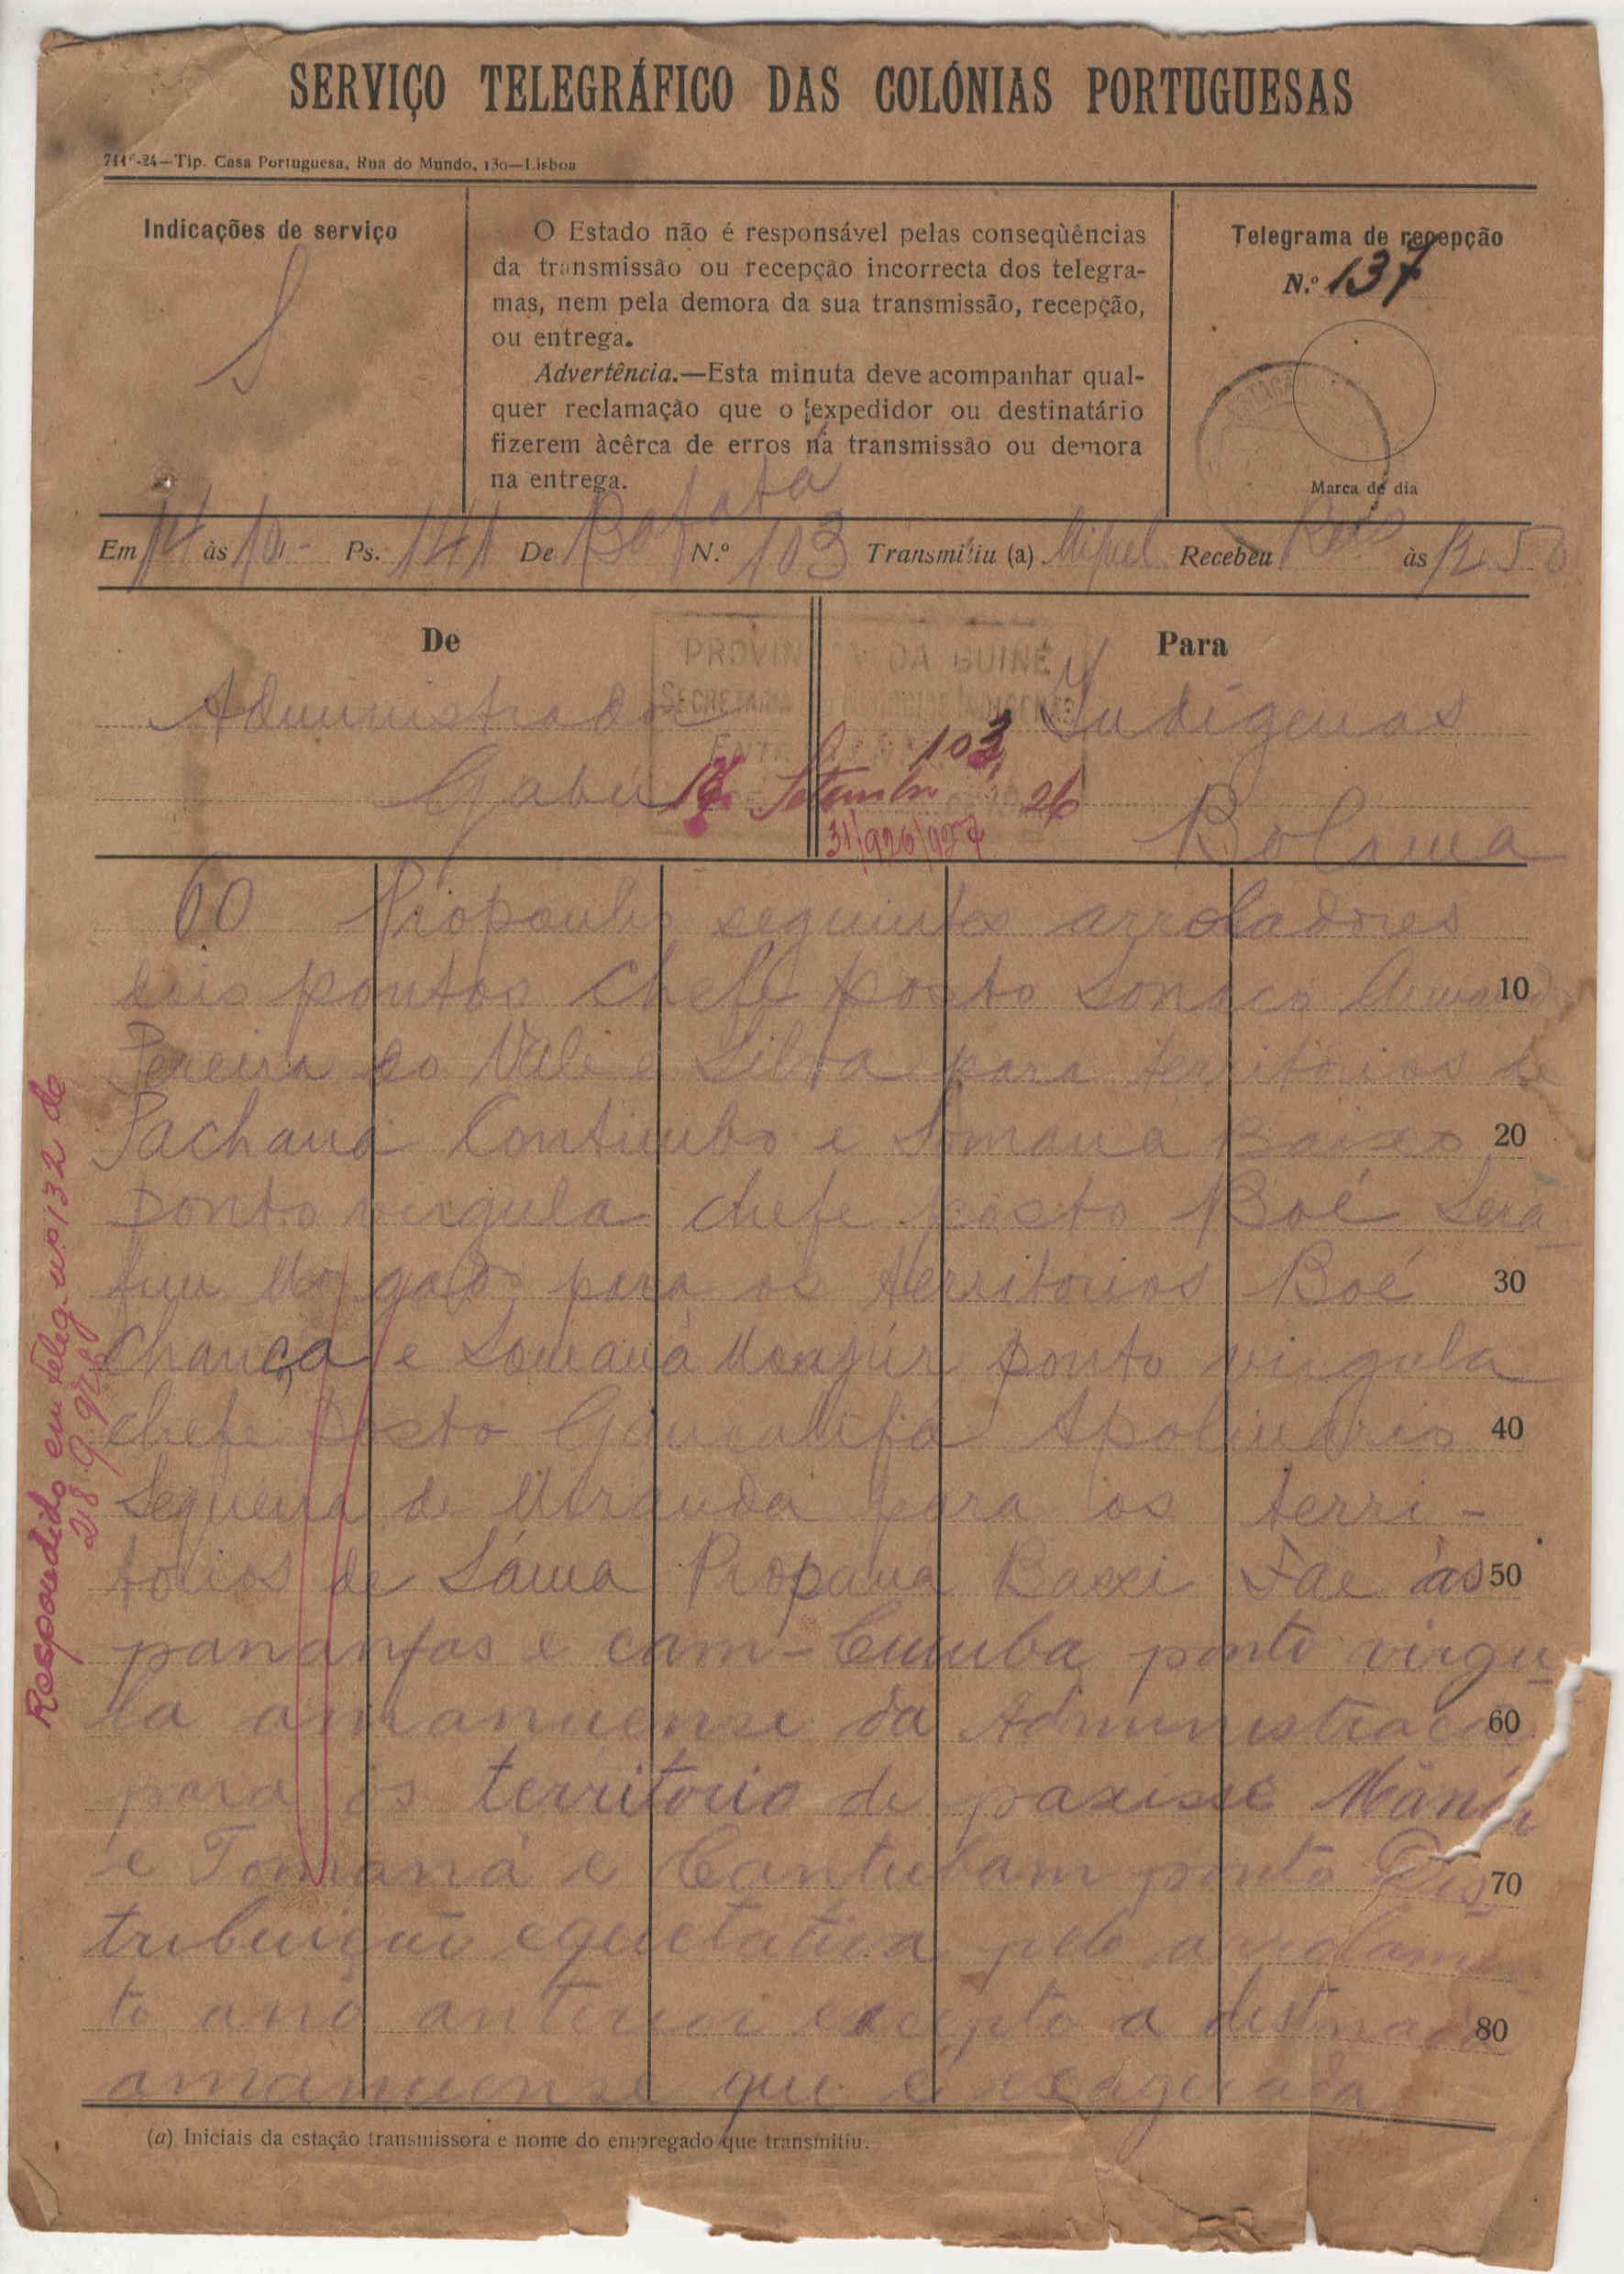 SERVIÇO TELEGRÁFICO DAS COLÓNIAS PORTUGUESAS
Tip. Casa Portuguesa, Rua do Mundo, 130—Lisboa
Indicações de serviço
S
O Estado não é responsável pelas conseqùências
da transmissão ou recepção incorrecta dos telegra-
mas, nem pela demora da sua transmissão, recepção,
ou entrega.
Advertência.—Esta minuta deve acompanhar qual-
quer reclamação que o expedidor ou destinatário
fizerem àcêrca de erros na transmissão ou demora
na entrega.
Telegrama de recepção
N.º 137
Marca de dia
Em 14 às 10 Ps. 141 De Bafata N.º 103 Transmitiu (a) Miguel Recebeu às 12 50
De
Para
PROVINCIA DA GUINÉ
SECRETARIA
Administrador
Indígenas
103
Gabú
Setembro 26
Bolama
31/926/927
60 Proponho seguintes arroladores
dois pontos Chefe posto Sonaco 10
Pereira do Vale e Silva para territórios de
Pachana Contimbo e Baixo 20
ponto virgula chefe posto Boé Sera
fim Morgado para os territorios Boé 30
Chança e ponto virgula
chefe posto Apolinario 40
Sequeira de Miranda para os terri-
torios de Sáma Propana 50
e cam- ponto virgu
la amanuense da Administração 60
para os territorio de
e Tomaná e ponto Dis 70
tribuição equitativa pelo arrolamen
to ano anterior excepto a destinada 80
amanuense que é exagerada
(a) Iniciais da estação transmissora e nome do empregado que transmitiu.
Respondido em teleg. nº 132 de
28-9-926